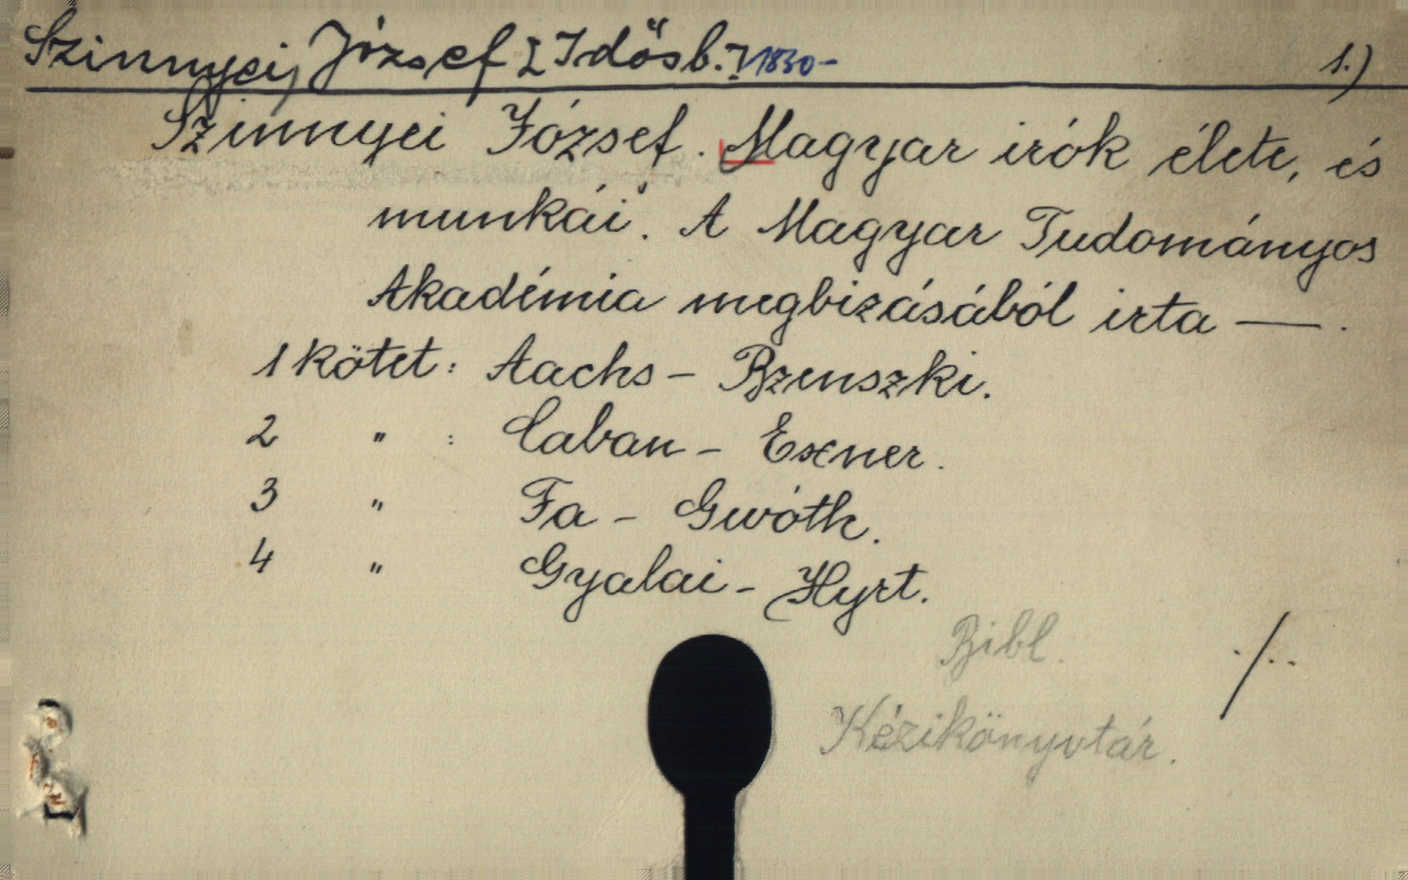 Szinnyei, József [Idősb.] 1830- 1.)
Szinnyei József. Magyar irók élete, és
munkái. A Magyar Tudományos
Akadémia megbizásából irta —.
1 kötet: Aachs - Bzenszki.
2 " : Caban - Exner.
3 " Fa - Gwóth.
4 " Gyalai - Hyrt.
Bibl. ./..
Kézikönyvtár.